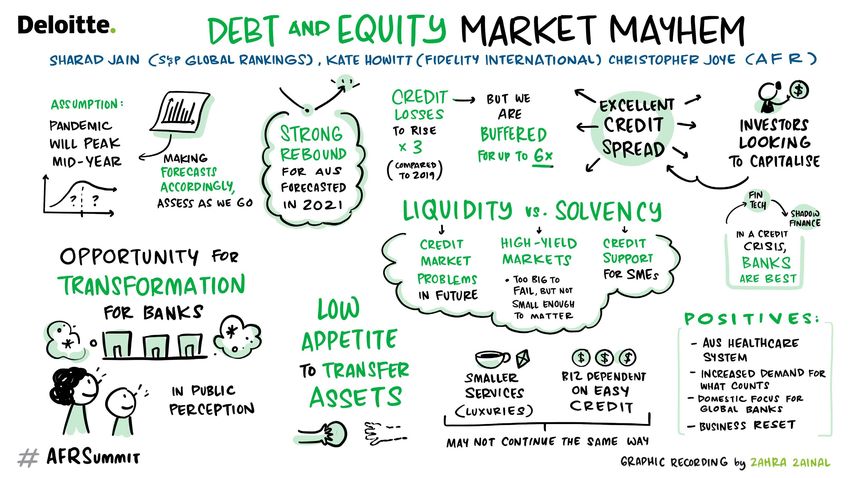 Deloitte.
DEBT AND EQUITY MARKET MAYHEM
SHARAD JAIN (S&P GLOBAL RANKINGS), KATE HOWITT (FIDELITY INTERNATIONAL) CHRISTOPHER JOYE (AFR)
ASSUMPTION:
PANDEMIC
WILL PEAK
MID-YEAR
? ?
MAKING
FORECASTS
ACCORDINGLY,
ASSESS AS WE GO
STRONG
REBOUND
FOR AUS
FORECASTED
IN 2021
CREDIT
LOSSES
TO RISE
x 3
(COMPARED
TO 2019)
BUT WE
ARE
BUFFERED
FOR UP TO 6x
EXCELLENT
CREDIT
SPREAD
$
INVESTORS
LOOKING
TO CAPITALISE
LIQUIDITY vs. SOLVENCY
CREDIT
MARKET
PROBLEMS
IN FUTURE
HIGH-YIELD
MARKETS
• TOO BIG TO
FAIL, BUT NOT
SMALL ENOUGH
TO MATTER
CREDIT
SUPPORT
FOR SMEs
FIN
TECH
SHADOW
FINANCE
IN A CREDIT
CRISIS,
BANKS
ARE BEST
OPPORTUNITY FOR
TRANSFORMATION
FOR BANKS
IN PUBLIC
PERCEPTION
LOW
APPETITE
TO TRANSFER
ASSETS
SMALLER
SERVICES
(LUXURIES)
$ $ $
BIZ DEPENDENT
ON EASY
CREDIT
MAY NOT CONTINUE THE SAME WAY
POSITIVES:
- AUS HEALTHCARE
SYSTEM
- INCREASED DEMAND FOR
WHAT COUNTS
- DOMESTIC FOCUS FOR
GLOBAL BANKS
- BUSINESS RESET
# AFRSUMMIT
GRAPHIC RECORDING by ZAHRA ZAINAL